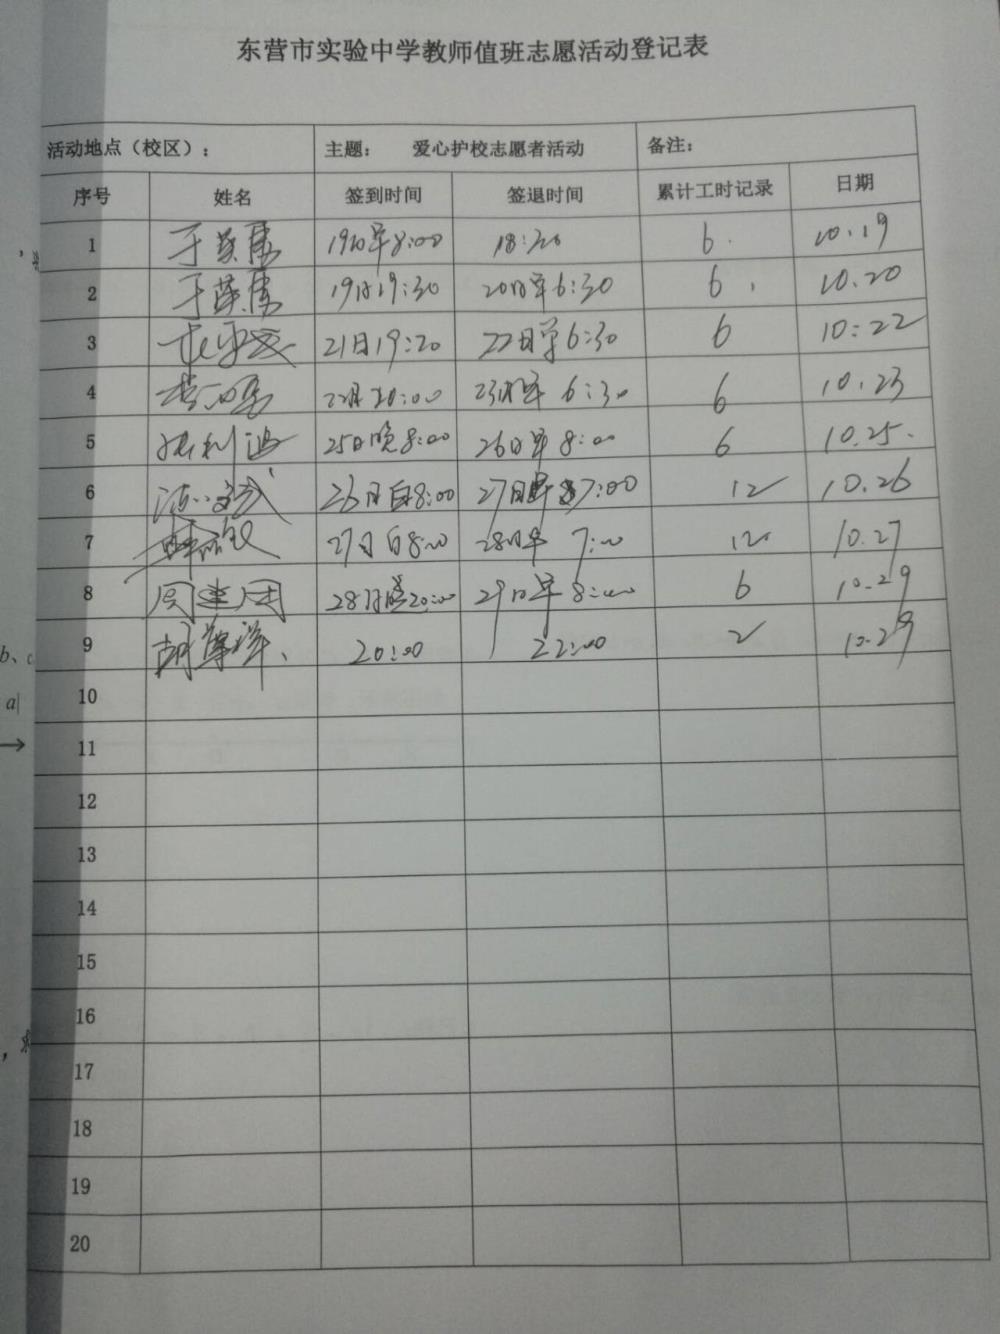 东营市实验中学教师值班志愿活动登记表
活动地点（校区）： 主题： 爱心护校志愿者活动 备注：
序号 姓名 签到时间 签退时间 累计工时记录 日期
1 于 19日早8:00 18:20 6. 10.19
2 于 19日19:30 20日早6:30 6. 10.20
3 21日19:20 22日早6:30 6 10:22
4 22日 20:00 23日早 6:30 6 10.23
5 张利 25日晚8:00 26日早8:00 6 10.25.
6 26日白8:00 27日早 7:00 12 10.26
7 27日白8:00 28日早 7:00 12 10.27
8 周建国 28日晚20:00 29日早8:00 6 10.29
9 胡尊祥、 20:00 22:00 2 10.29
10
11
12
13
14
15
16
17
18
19
20
b、c
a|
→